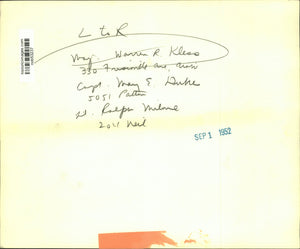 L to R
Maj. Warren R. Kless
330
Capt. Mary E. Duke
5051 Patten
Lt. Ralph Milne
2011 Neil
SEP 1 1952